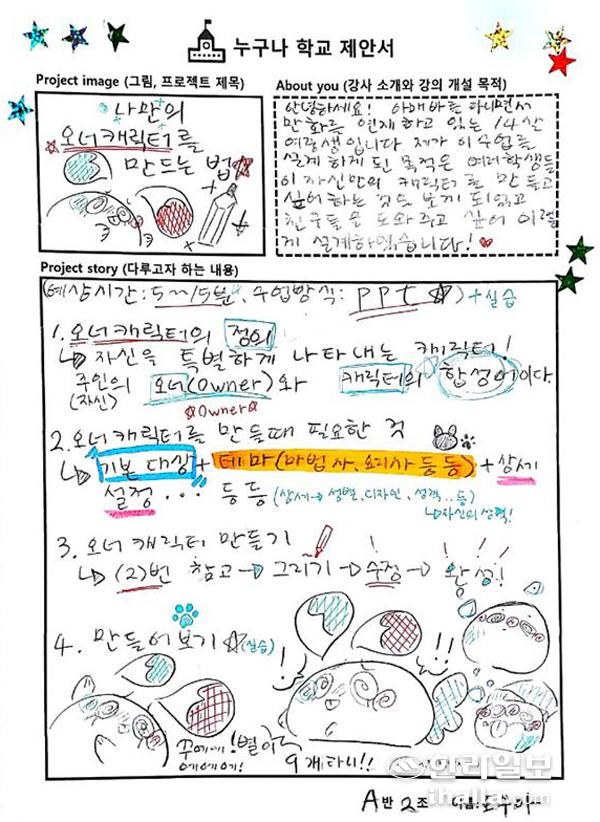 누구나 학교 제안서
Project image (그림, 프로젝트 제목)
나만의
오너캐릭터를
만드는 법
About you (강사 소개와 강의 개설 목적)
만화를 연재하고 있는 14살
여학생입니다 제가 이 수업을
설계하게 된 목적은 여러학생들
이 자신만의 캐릭터를 만들고
싶어하는 것을 보게 되었고
친구들을 도와주고 싶어 이렇
게 설계하였습니다!
Project story (다루고자 하는 내용)
(예상시간: 5~15분, 수업방식: PPt ☆) + 실습
1. 오너캐릭터의 정의
↳ 자신을 특별하게 나타내는 캐릭터!
주인의 오너(Owner)와 캐릭터의 합성어이다.
(자신)
☆Owner☆
2. 오너캐릭터를 만들때 필요한 것
↳ 기본 대상 + 테마(마법사, 요리사 등등) + 상세
설정 ... 등등 (상세→성별, 디자인, 성격..등)
↳자신의 성격!
3. 오너 캐릭터 만들기
↳ (2)번 참고 → 그리기 → 수정 → 완성!
4. 만들어보기 ☆(실습)
!
!!
9개라니!!
A반 2조
한라일보
ihalla.com